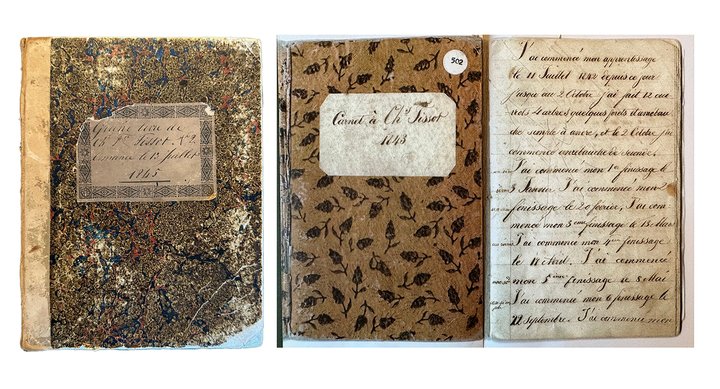 Grand livre de
Ch. F. Tissot N° 2.
commencé le 12 juillet
1845
502
Carnet à Ch. Tissot
1843
J'ai commencé mon apprentissage
le 11 Juillet 1842 depuis ce jour
jusqu au 2 Octobre j'ai fait 12
4 arbres quelques
simple à ancre, et le 2 Octobre j'ai
commencé
J'ai commencé mon 1er finissage le
3 Janvier J'ai commencé mon
finissage le 20 février, J'ai com
mencé mon 3 ème finissage le 13 Mars
J'ai commencé mon 4 ème finissage
le 14 Avril. J'ai commencé
mon 5 ème finissage le 8 Mai
J'ai commencé mon 6 finissage le
22 Septembre. J'ai commencé mon